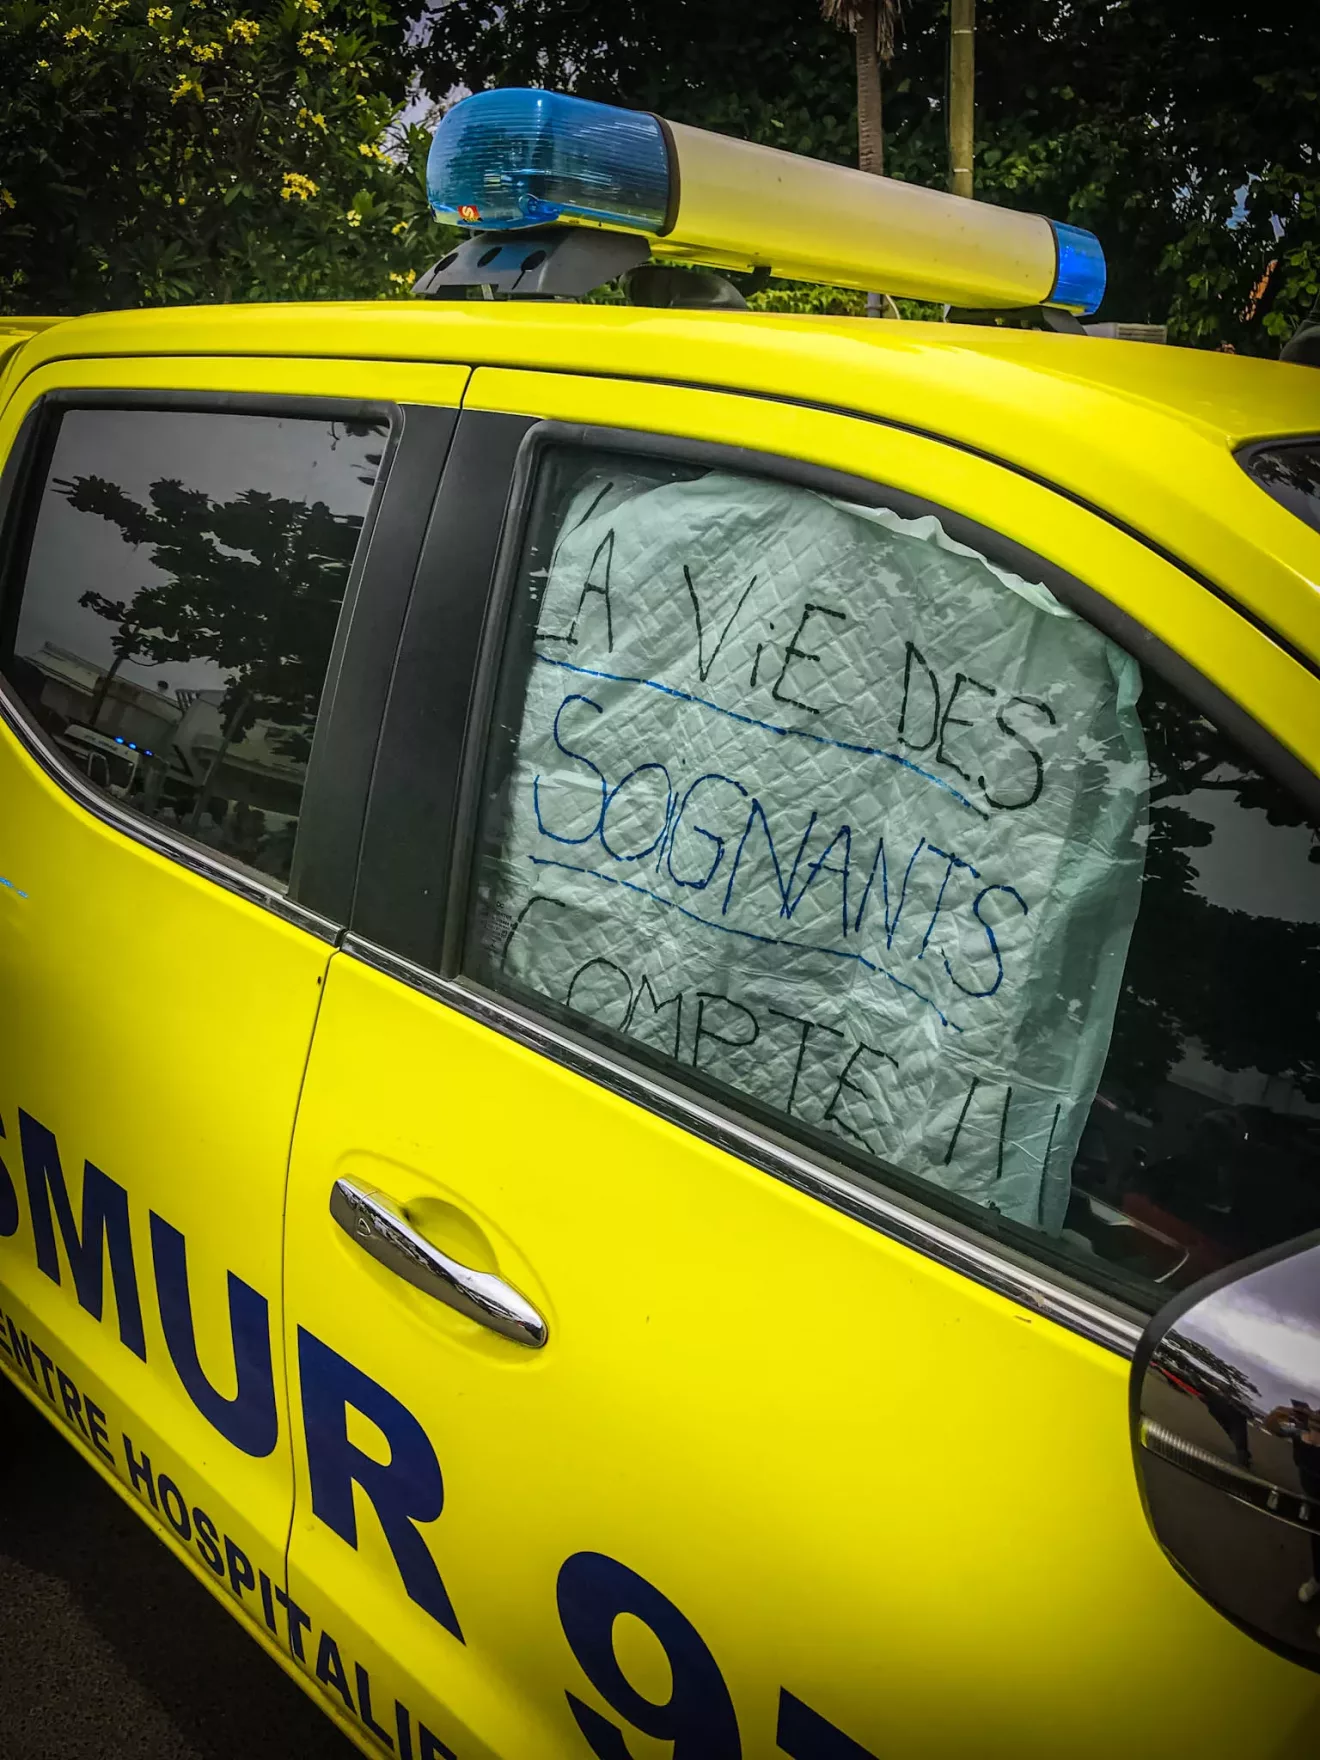 LA VIE DES
SOIGNANTS
COMPTE !!!
SMUR 97
CENTRE HOSPITALIE